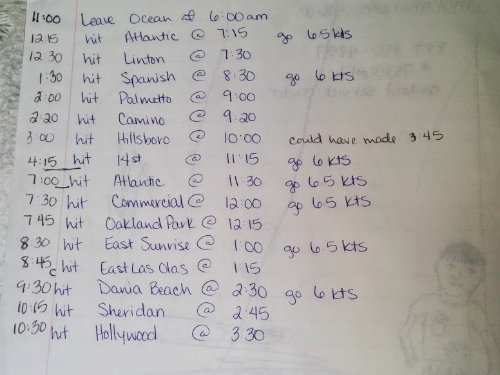 11:00 Leave Ocean @ 6:00am
12:15 hit Atlantic @ 7:15 go 6.5 kts
12:30 hit Linton @ 7:30
1:30 hit Spanish @ 8:30 go 6 kts
2:00 hit Palmetto @ 9:00
2:20 hit Camino @ 9:20
3:00 hit Hillsboro @ 10:00 could have made 3:45
4:15 hit 14st @ 11:15 go 6 kts
7:00 hit Atlantic @ 11:30 go 6.5 kts
7:30 hit Commercial @ 12:00 go 6.5 kts
7:45 hit Oakland Park @ 12:15
8:30 hit East Sunrise @ 1:00 go 6.5 kts
8:45 hit East Las Olas @ 1:15
9:30 hit Dania Beach @ 2:30 go 6 kts
10:15 hit Sheridan @ 2:45
10:30 hit Hollywood @ 3:30